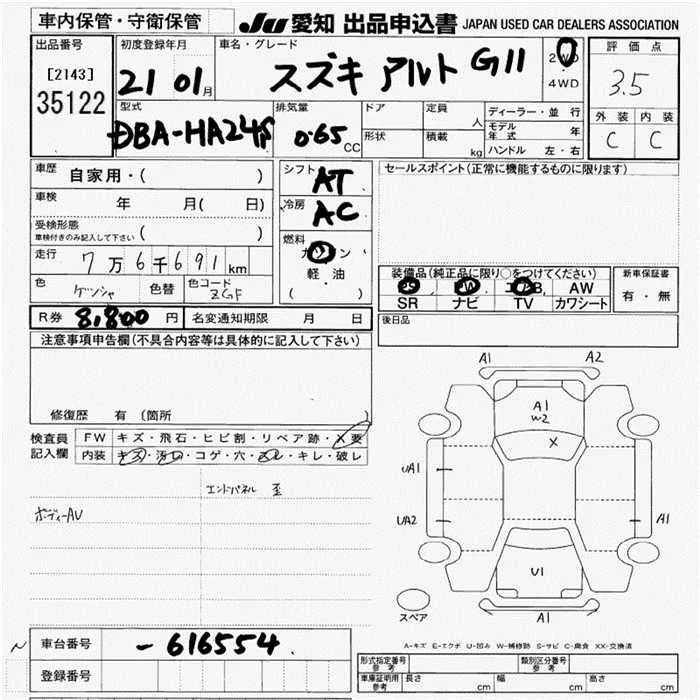 車内保管・守衛保管
JU 愛知 出品申込書 JAPAN USED CAR DEALERS ASSOCIATION
出品番号
[2143]
35122
初度登録年月
21 01月
車名・グレード
スズキ アルト GⅡ
2WD
・
4WD
評価点
3.5
外装 内装
C C
型式
DBA-HA24S
排気量
0.65 CC
ドア
形状
定員 人
積載 kg
ディーラー・並行
モデル年式 年
ハンドル 左・右
車歴 自家用・( )
車検 年 月( 日)
受検形態
車検付きのみ記入して下さい ( )
走行 7万6千691km
色 ゲンシャ 色替 色コード ZGF
シフト AT
冷房 AC
燃料
ガソリン
軽・油
( )
セールスポイント(正常に機能するものに限ります)
装備品(純正品に限り○をつけてください)
PS PW エアB AW
SR ナビ TV カワシート
新車保証書
有・無
R券 8,800 円 名変通知期限 月 日
後日品
注意事項申告欄(不具合内容等は具体的に記入して下さい)
修復歴 有(箇所 )
検査員
記入欄
FW キズ・飛石・ヒビ割・リペア跡・X要
内装 キズ・汚レ・コゲ・穴・スレ・キレ・破レ
エンドパネル 歪
ボディーAU
A1 A2
A1
W2
X
UA1
UA2
A1
U1
A1
スペア
A-キズ E-エクボ U-凹み W-補修跡 S-サビ C-腐食 XX-交換済
車台番号 -616554
登録番号
形式指定番号
参考
類別区分番号
参考
車庫証明用
参考
長さ cm 幅 cm 高さ cm